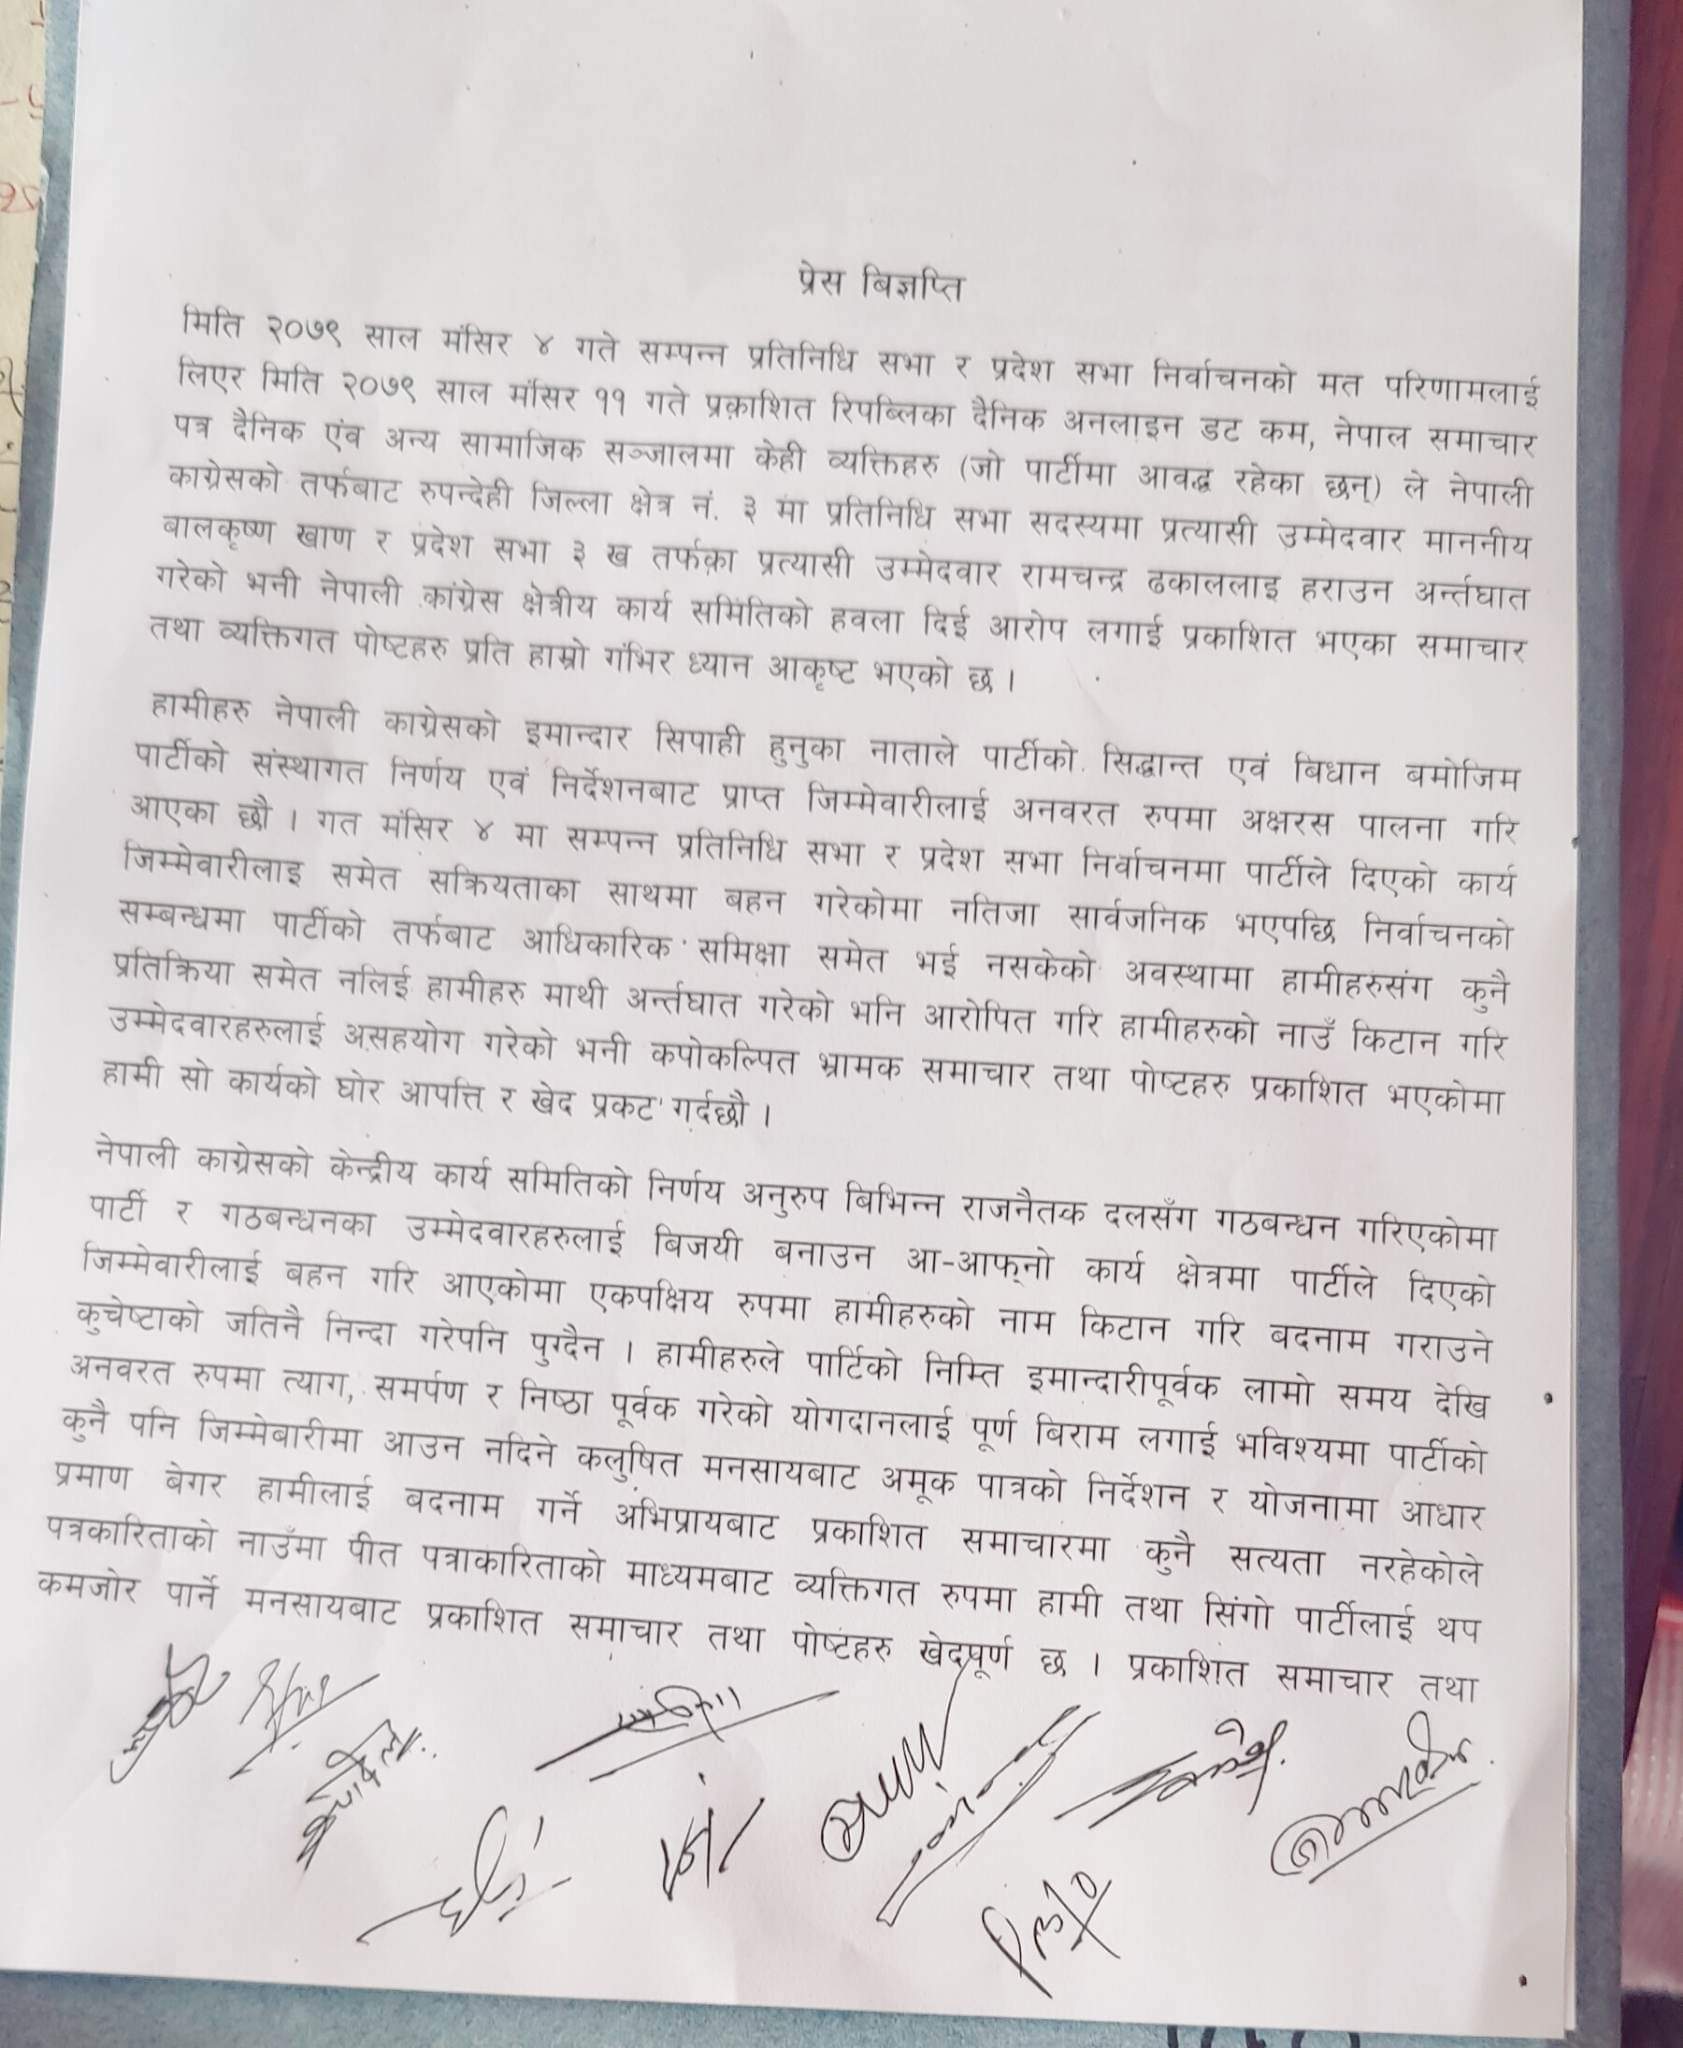 प्रेस बिज्ञप्ति
मिति २०७९ साल मंसिर ४ गते सम्पन्न प्रतिनिधि सभा र प्रदेश सभा निर्वाचनको मत परिणामलाई
लिएर मिति २०७९ साल मंसिर ११ गते प्रकाशित रिपब्लिका दैनिक अनलाइन डट कम, नेपाल समाचार
पत्र दैनिक एंव अन्य सामाजिक सञ्जालमा केही व्यक्तिहरु (जो पार्टीमा आवद्ध रहेका छन्) ले नेपाली
काग्रेसको तर्फबाट रुपन्देही जिल्ला क्षेत्र नं. ३ मा प्रतिनिधि सभा सदस्यमा प्रत्यासी उम्मेदवार माननीय
बालकृष्ण खाण र प्रदेश सभा ३ ख तर्फका प्रत्यासी उम्मेदवार रामचन्द्र ढकाललाइ हराउन अर्न्तघात
गरेको भनी नेपाली कांग्रेस क्षेत्रीय कार्य समितिको हवला दिई आरोप लगाई प्रकाशित भएका समाचार
तथा व्यक्तिगत पोष्टहरु प्रति हाम्रो गंभिर ध्यान आकृष्ट भएको छ ।
हामीहरु नेपाली काग्रेसको इमान्दार सिपाही हुनुका नाताले पार्टीको सिद्धान्त एवं बिधान बमोजिम
पार्टीको संस्थागत निर्णय एवं निर्देशनबाट प्राप्त जिम्मेवारीलाई अनवरत रुपमा अक्षरस पालना गरि
आएका छौ । गत मंसिर ४ मा सम्पन्न प्रतिनिधि सभा र प्रदेश सभा निर्वाचनमा पार्टीले दिएको कार्य
जिम्मेवारीलाइ समेत सक्रियताका साथमा बहन गरेकोमा नतिजा सार्वजनिक भएपछि निर्वाचनको
सम्बन्धमा पार्टीको तर्फबाट आधिकारिक समिक्षा समेत भई नसकेको अवस्थामा हामीहरुसंग कुनै
प्रतिक्रिया समेत नलिई हामीहरु माथी अर्न्तघात गरेको भनि आरोपित गरि हामीहरुको नाउँ किटान गरि
उम्मेदवारहरुलाई असहयोग गरेको भनी कपोकल्पित भ्रामक समाचार तथा पोष्टहरु प्रकाशित भएकोमा
हामी सो कार्यको घोर आपत्ति र खेद प्रकट गर्दछौ ।
नेपाली काग्रेसको केन्द्रीय कार्य समितिको निर्णय अनुरुप बिभिन्न राजनैतक दलसँग गठबन्धन गरिएकोमा
पार्टी र गठबन्धनका उम्मेदवारहरुलाई बिजयी बनाउन आ-आफ्‌नो कार्य क्षेत्रमा पार्टीले दिएको
जिम्मेवारीलाई बहन गरि आएकोमा एकपक्षिय रुपमा हामीहरुको नाम किटान गरि बदनाम गराउने
कुचेष्टाको जतिनै निन्दा गरेपनि पुग्दैन । हामीहरुले पार्टिको निम्ति इमान्दारीपूर्वक लामो समय देखि
अनवरत रुपमा त्याग, समर्पण र निष्ठा पूर्वक गरेको योगदानलाई पूर्ण बिराम लगाई भविश्यमा पार्टीको
कुनै पनि जिम्मेबारीमा आउन नदिने कलुषित मनसायबाट अमूक पात्रको निर्देशन र योजनामा आधार
प्रमाण बेगर हामीलाई बदनाम गर्ने अभिप्रायबाट प्रकाशित समाचारमा कुनै सत्यता नरहेकोले
पत्रकारिताको नाउँमा पीत पत्राकारिताको माध्यमबाट व्यक्तिगत रुपमा हामी तथा सिंगो पार्टीलाई थप
कमजोर पार्ने मनसायबाट प्रकाशित समाचार तथा पोष्टहरु खेदपूर्ण छ । प्रकाशित समाचार तथा